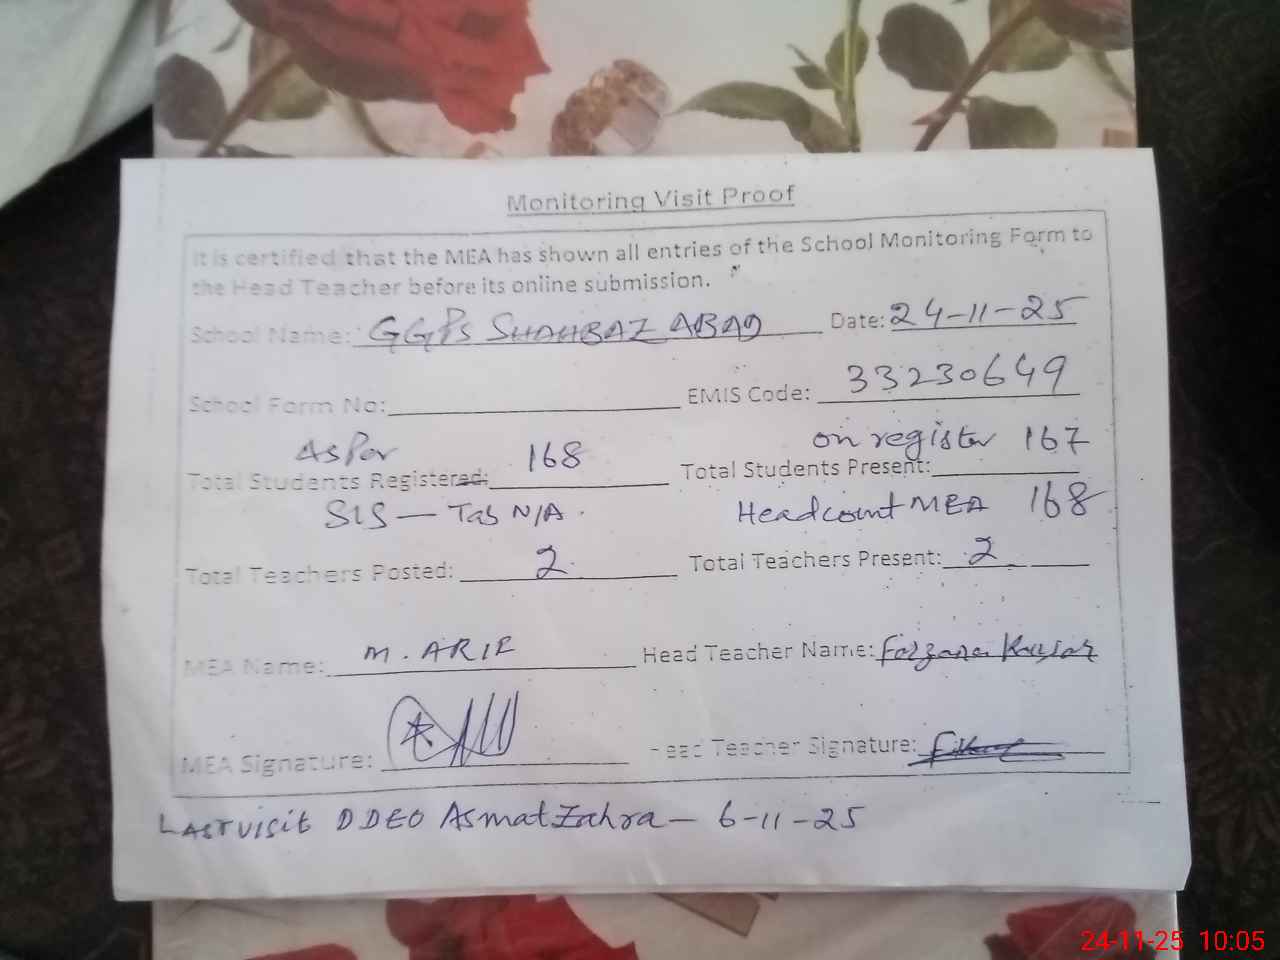 Monitoring Visit Proof
It is certified that the MEA has shown all entries of the School Monitoring Form to
the Head Teacher before its online submission.
School Name: GGPS SHAHBAZ ABAD Date: 24-11-25
School Form No: EMIS Code: 33230649
As Per 168 on register 167
Total Students Registered: Total Students Present:
SIS — Tab N/A. Headcount MEA 168
Total Teachers Posted: 2 Total Teachers Present: 2
MEA Name: M. ARIF Head Teacher Name: Farzana Kausar
MEA Signature: Head Teacher Signature:
LAST visit DDEO Asmat Zahra — 6-11-25
24-11-25 10:05